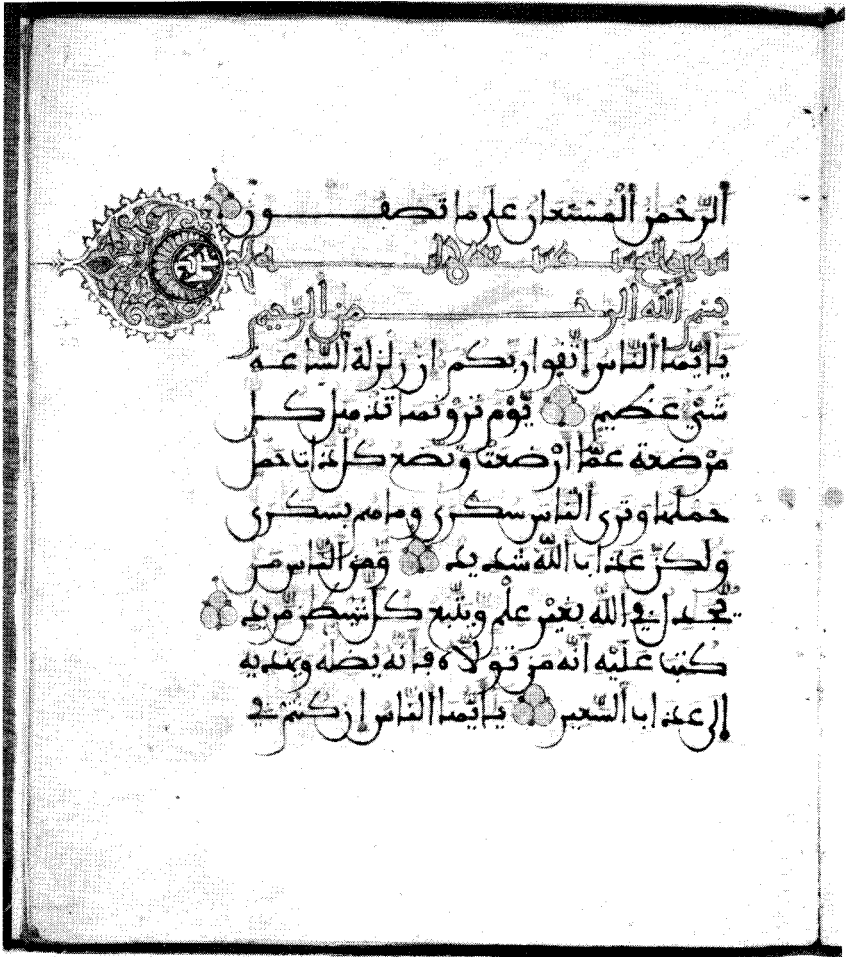 الرَّحْمٰنُ الْمُسْتَعَانُ عَلَىٰ مَا تَصِفُونَ
بسم الله الرحمن الرحيم
يَا أَيُّهَا النَّاسُ اتَّقُوا رَبَّكُمْ إِنَّ زَلْزَلَةَ السَّاعَةِ
شَيْءٌ عَظِيمٌ يَوْمَ تَرَوْنَهَا تَذْهَلُ كُلُّ
مُرْضِعَةٍ عَمَّا أَرْضَعَتْ وَتَضَعُ كُلُّ ذَاتِ حَمْلٍ
حَمْلَهَا وَتَرَى النَّاسَ سُكَرَىٰ وَمَا هُم بِسُكَرَىٰ
وَلَٰكِنَّ عَذَابَ اللَّهِ شَدِيدٌ وَمِنَ النَّاسِ مَن
يُجَدِلُ فِي اللَّهِ بِغَيْرِ عِلْمٍ وَيَتَّبِعُ كُلَّ شَيْطَنٍ مَّرِيدٍ
كُتِبَ عَلَيْهِ أَنَّهُ مَن تَوَلَّاهُ فَأَنَّهُ يُضِلُّهُ وَيَهْدِيهِ
إِلَىٰ عَذَابِ السَّعِيرِ يَا أَيُّهَا النَّاسُ إِن كُنتُمْ فِي